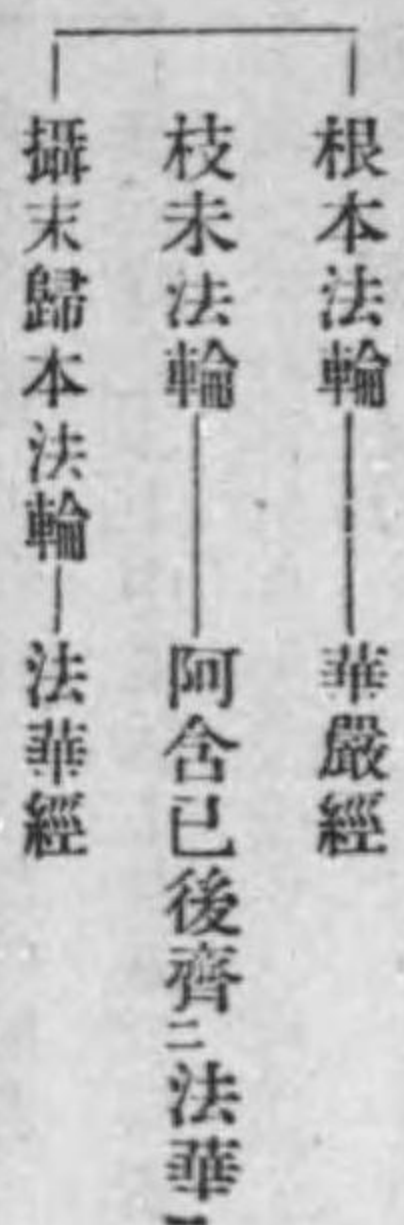 根本法輪 華嚴經
枝未法輪 阿含已後齊二法華
攝末歸本法輪 法華經